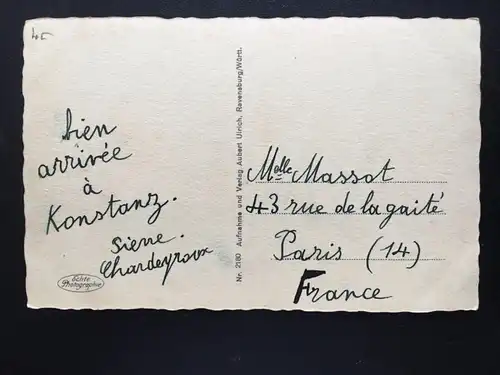 bien
arrivée
à
Konstanz.
Siene.
Chardeyroux
Echte
Photographie
Nr. 2180 Aufnahme und Verlag Aubert Ulrich, Ravensburg/Württ.
Melle Massot
43 rue de la gaité
Paris (14)
France